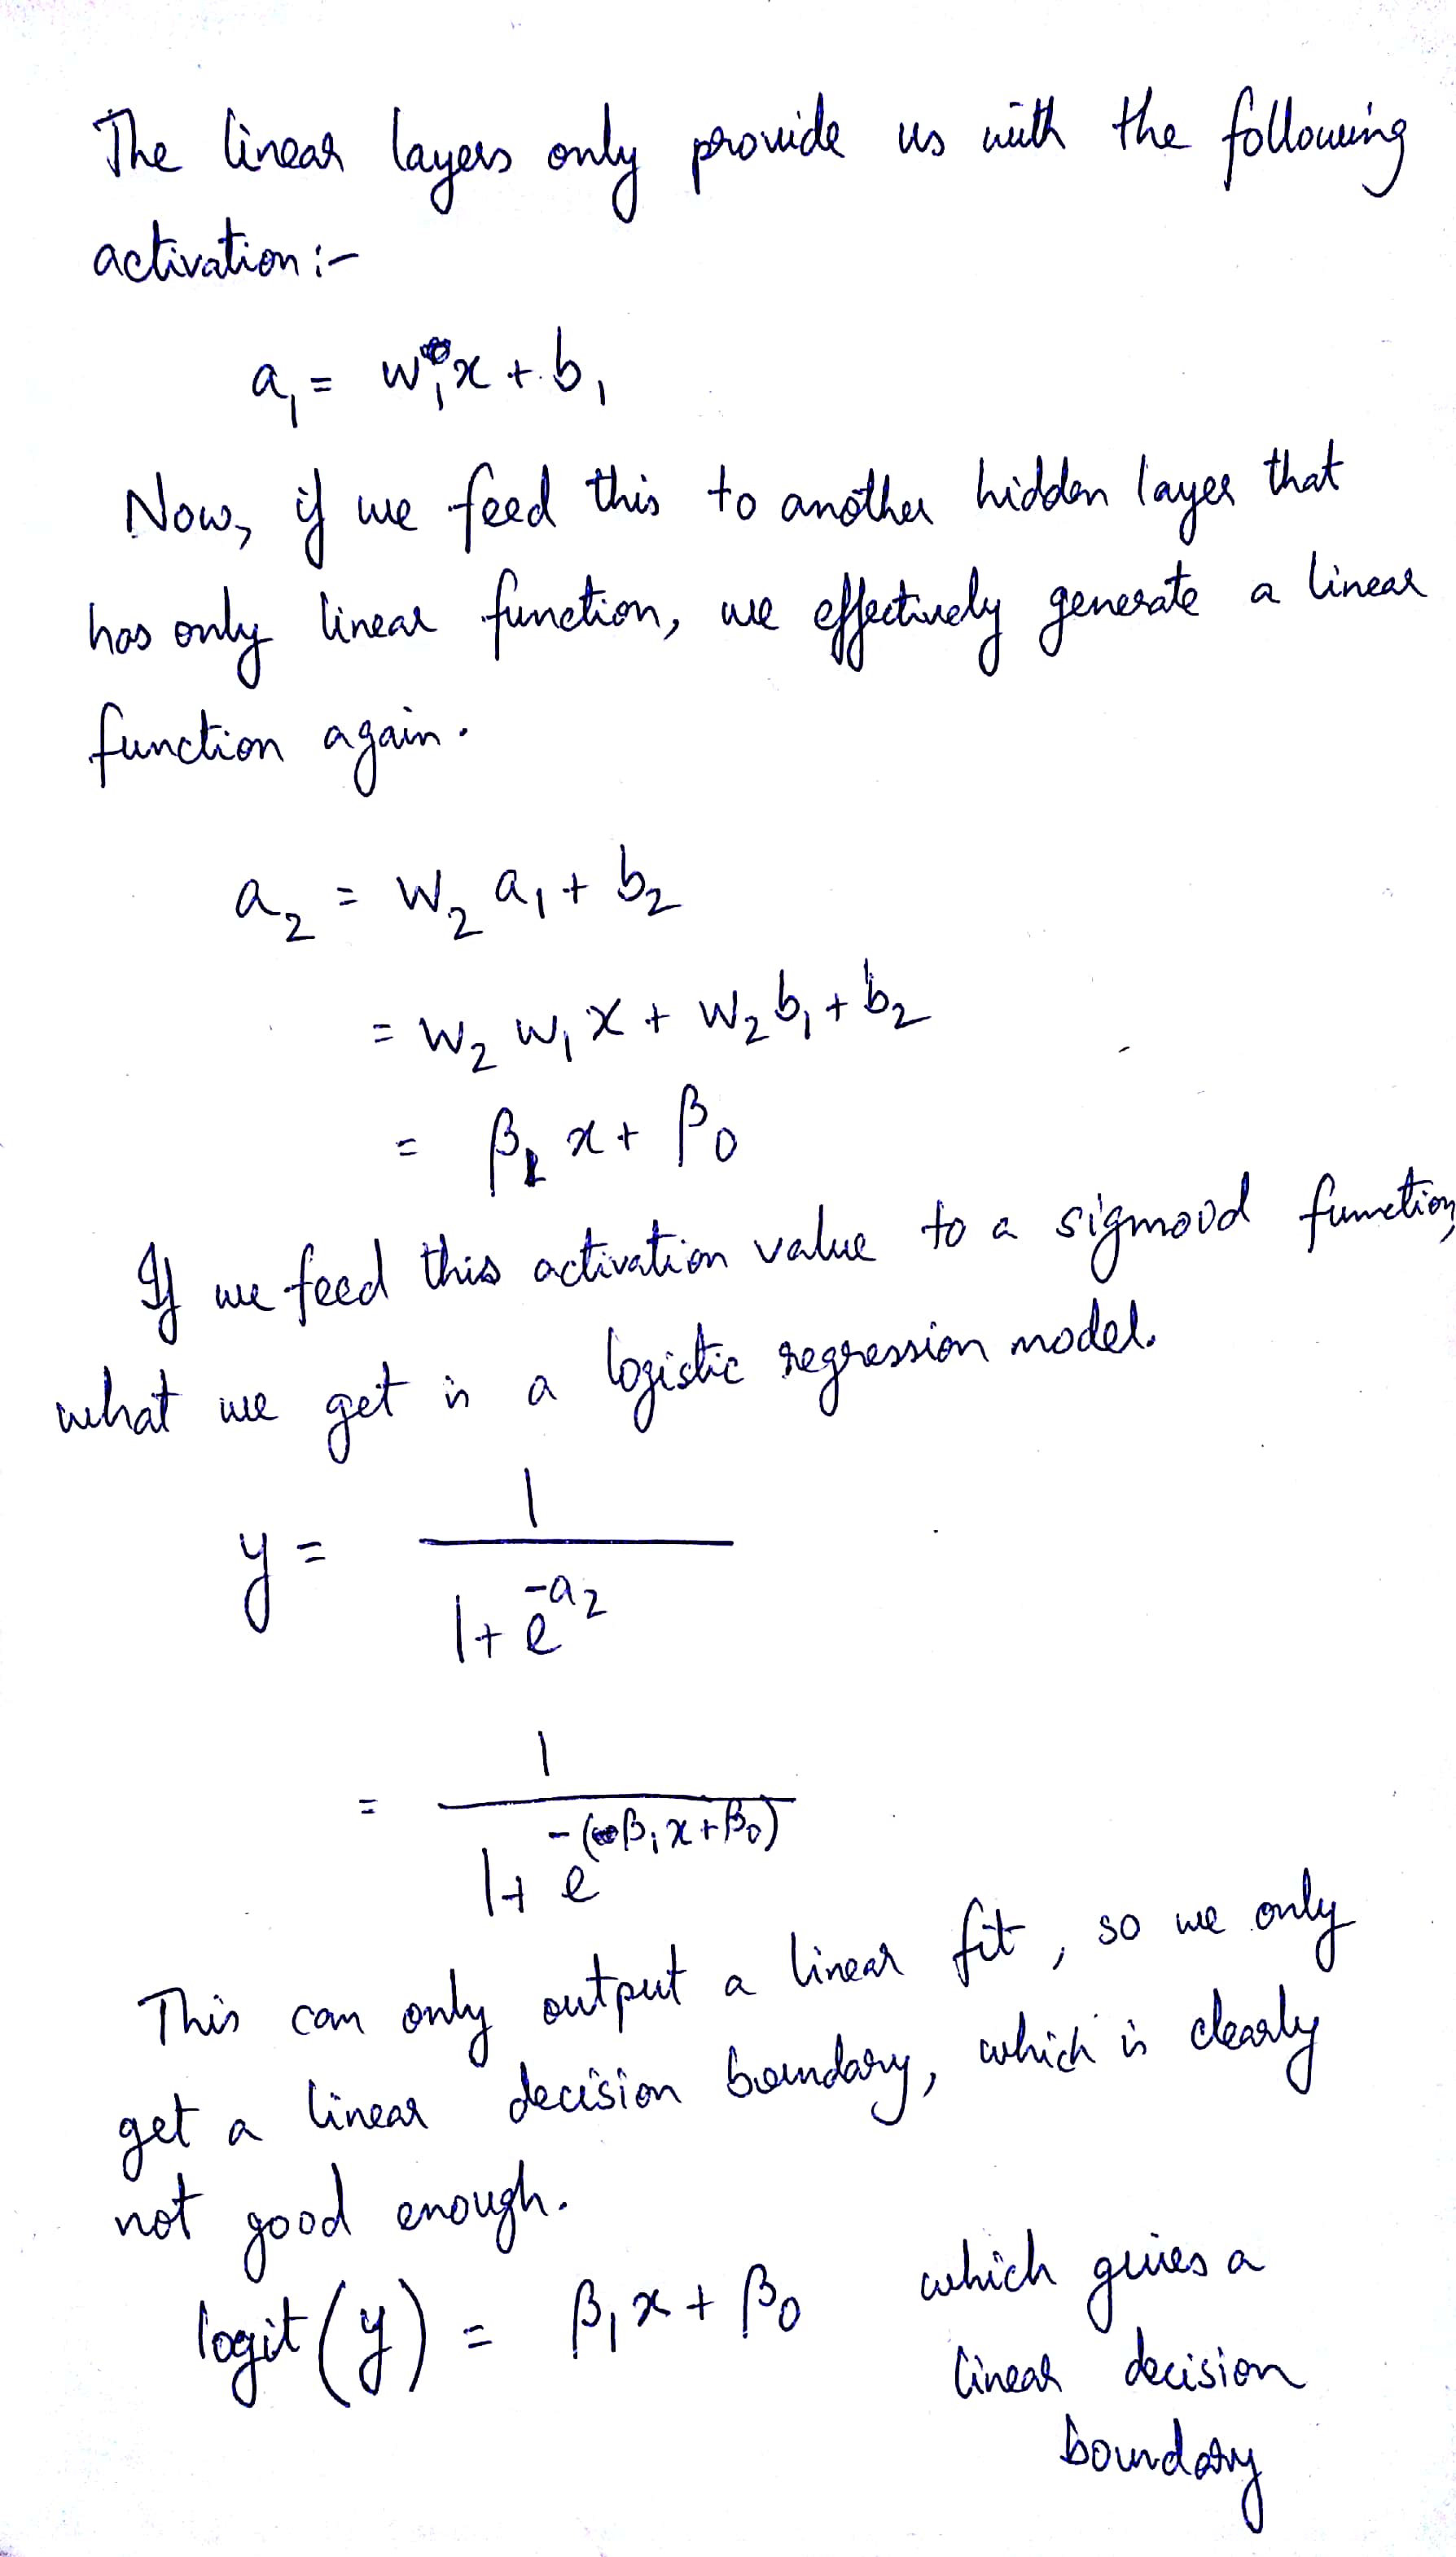 The linear layers only provide us with the following
activation :-
a₁ = w₁x + b₁
Now, if we feed this to another hidden layer that
has only linear function, we effectively generate a linear
function again.
a₂ = W₂ a₁ + b₂
= W₂ W₁ X + W₂ b₁ + b₂
= β₁ x + β₀
If we feed this activation value to a sigmoid function,
what we get is a logistic regression model.
y = 1 / (1 + e^(-a₂))
= 1 / (1 + e^(-(β₁ x + β₀)))
This can only output a linear fit, so we only
get a linear decision boundary, which is clearly
not good enough.
logit(y) = β₁ x + β₀ which gives a
linear decision
boundary